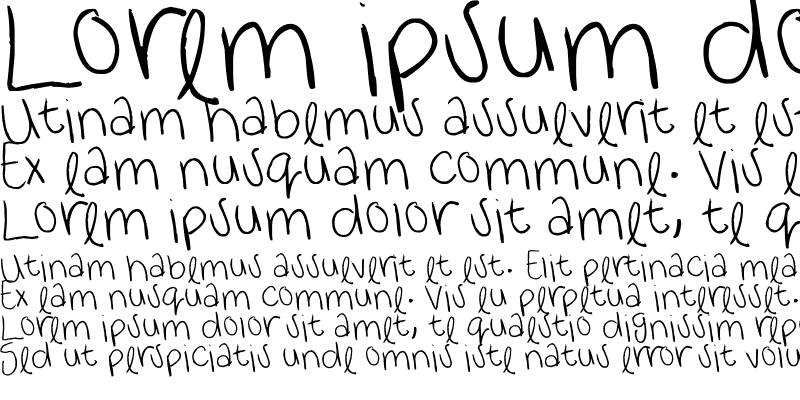 Lorem ipsum do
Utinam habemus assueverit et es
Ex eam nusquam commune. Vis e
Lorem ipsum dolor sit amet, te q
Utinam habemus assueverit et est. Elit pertinacia mea
Ex eam nusquam commune. Vis eu perpetua interesset.
Lorem ipsum dolor sit amet, te quaestio dignissim rep
Sed ut perspiciatis unde omnis iste natus error sit volu